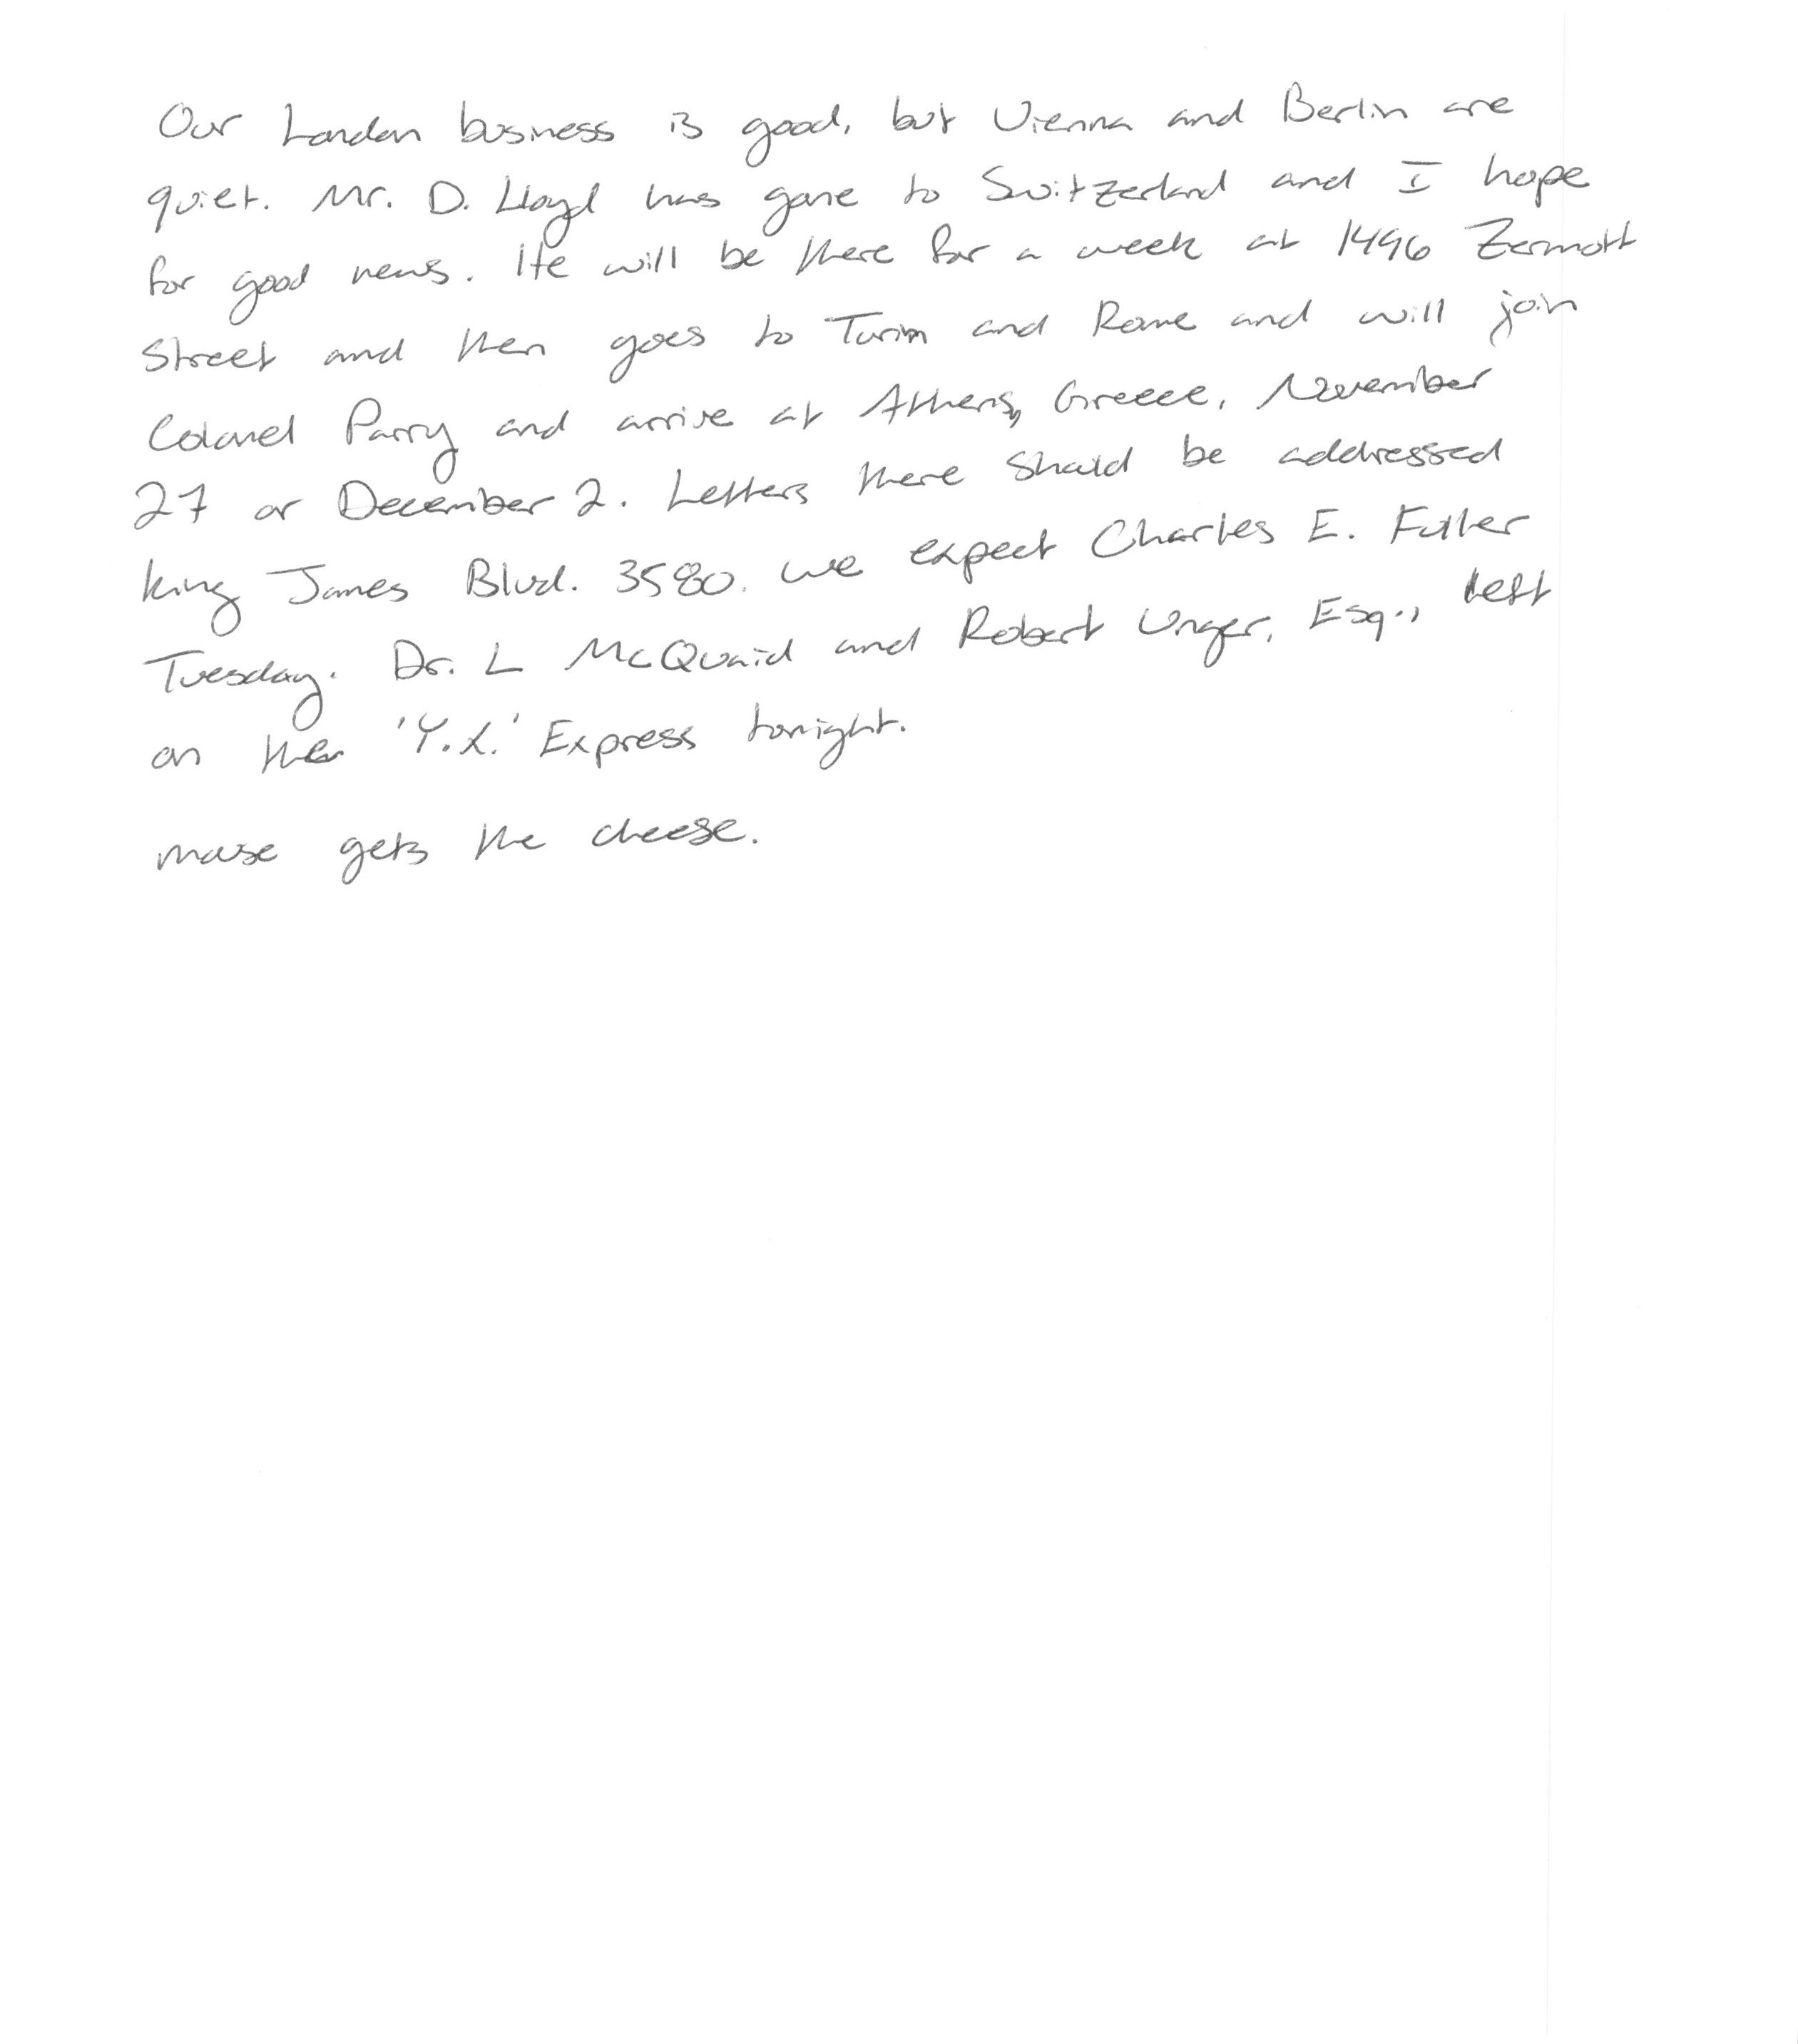 Our London business is good, but Vienna and Berlin are
quiet. Mr. D. Lloyd has gone to Switzerland and I hope
for good news. He will be there for a week at 1496 Zermott
Street and then goes to Turin and Rome and will join
Colonel Parry and arrive at Athens, Greece, November
27 or December 2. Letters there should be addressed
King James Blvd. 3580. We expect Charles E. Fuller
Tuesday. Dr. L McQuaid and Robert Unger, Esq., left
on the 'Y.X.' Express tonight.
mouse gets the cheese.